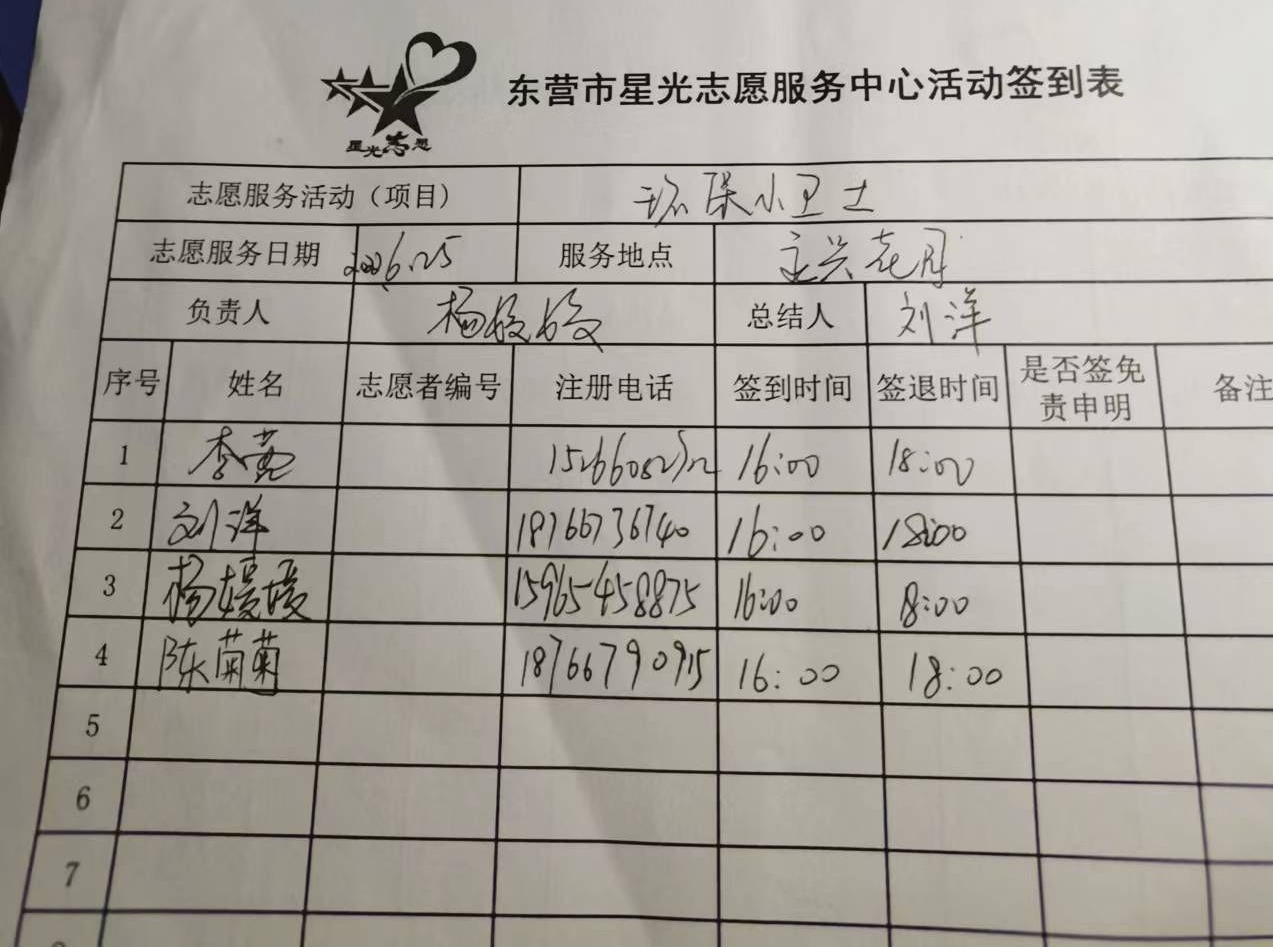 东营市星光志愿服务中心活动签到表
星光志愿
志愿服务活动（项目） 环保小卫士
志愿服务日期 服务地点
负责人 杨媛媛 总结人 刘洋
序号 姓名 志愿者编号 注册电话 签到时间 签退时间 是否签免责申明 备注
1 李 16:00 18:00
2 刘洋 18766736740 16:00 18:00
3 杨媛媛 15965458875 16:00 18:00
4 陈菊菊 18766790915 16:00 18:00
5
6
7